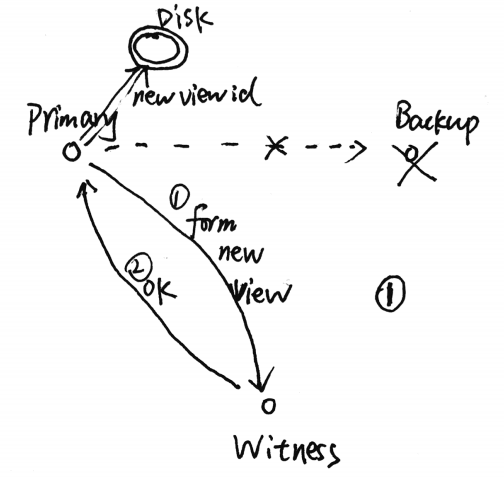 Disk
new view id
Primary
Backup
① form
new
view
② OK
①
Witness